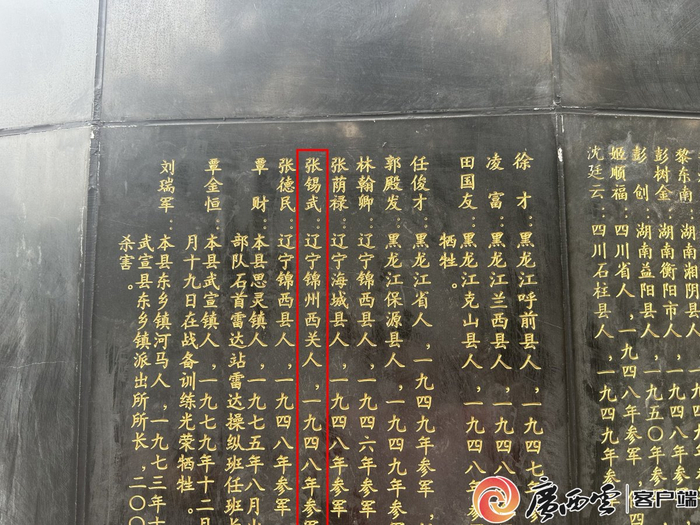 黎东南：湖南湘阴县人，
彭树金：湖南衡阳市人，一九
彭创：湖南益阳县人，一九五〇年参军
姬顺福：四川省人，一九四八年参军
沈廷云：四川石柱县人，一九四九年
徐才：黑龙江呼前县人，一九四七
凌富：黑龙江兰西县人，一九四八
田国友：黑龙江克山县人，一九四八
牺牲。
任俊才：黑龙江省人，一九四九年参军
郭殿发：黑龙江保源县人，一九四九年
林翰卿：辽宁锦西县人，一九四六年参军
张荫禄：辽宁海城县人，一九四八年参军
张锡武：辽宁锦州西关人，一九四八年参军
张德民：辽宁锦西县人，一九四八年参军
覃财：本县思灵镇人，一九七五年八月
部队石首雷达站雷达操纵班任班长
覃金恒：本县武宣镇人，一九七九年十二月
月十九日在战备训练光荣牺牲。
刘瑞军：本县东乡镇河马人，一九七三年
武宣县东乡镇派出所所长，二〇〇
杀害。
广西云客户端